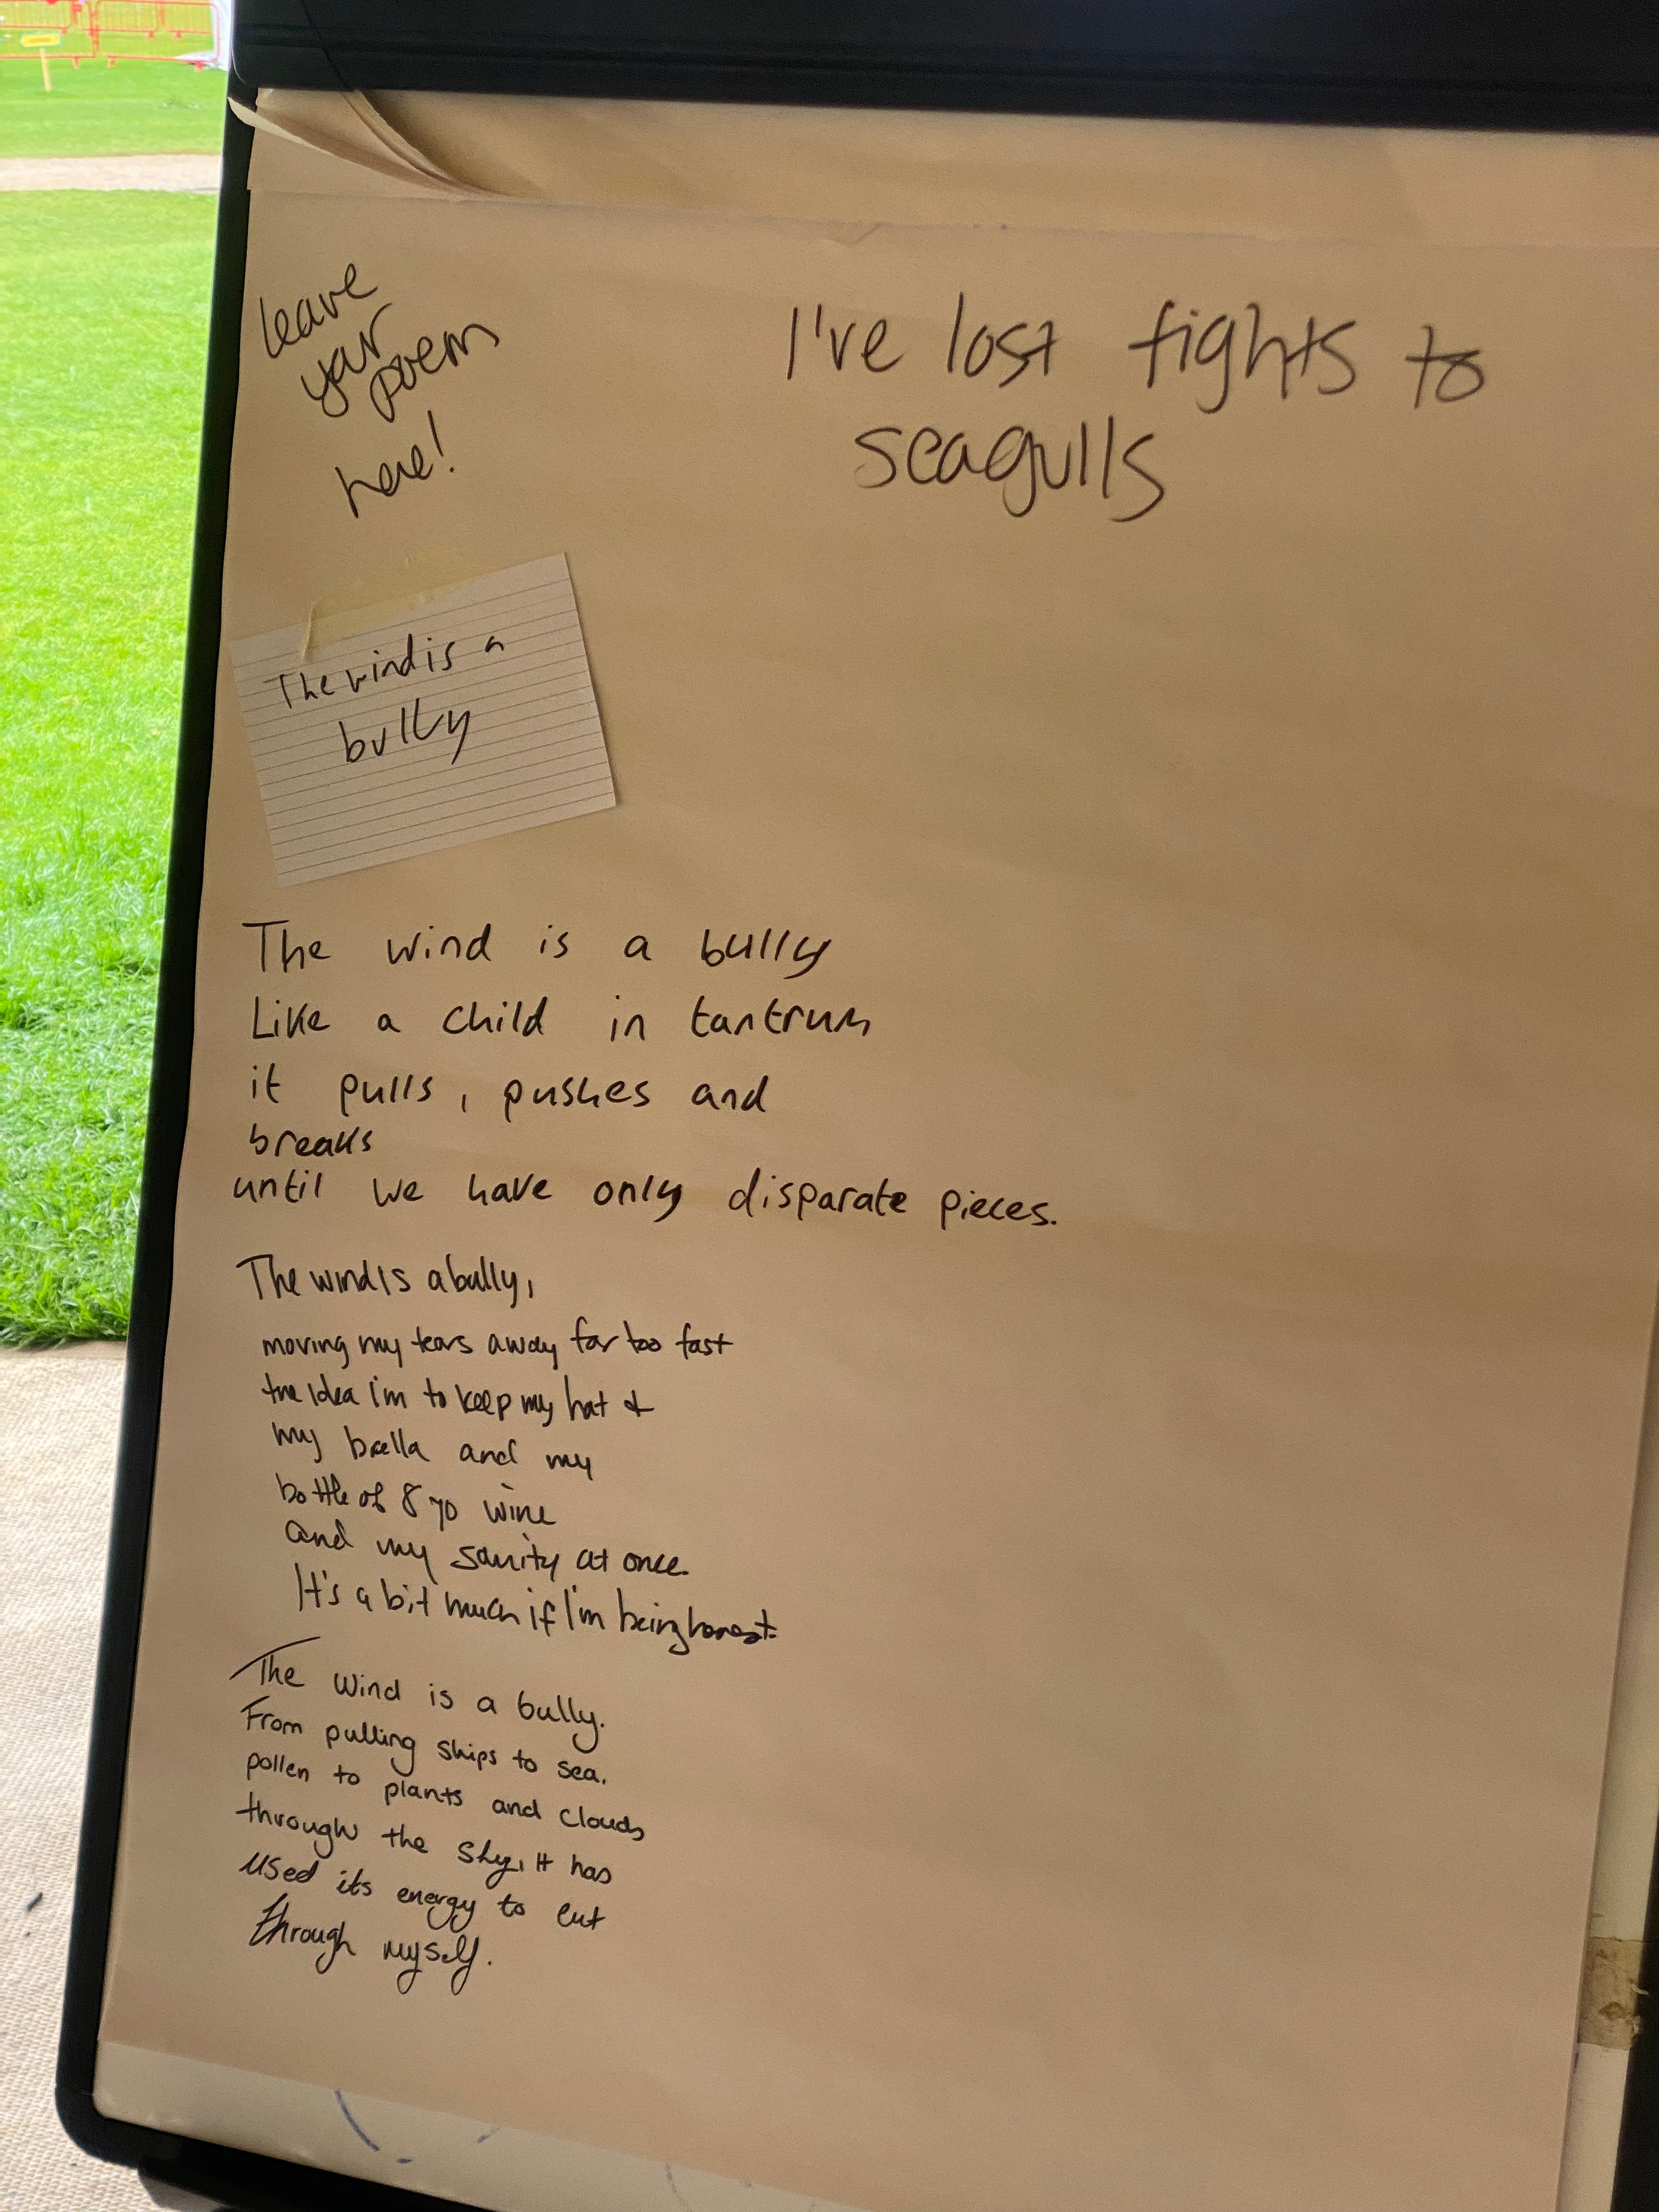 leave
your
poem
here!
I've lost fights to
seagulls
The wind is a
bully
The wind is a bully
Like a child in tantrum
it pulls, pushes and
breaks
until we have only disparate pieces.
The wind is a bully,
moving my tears away far too fast
the idea i'm to keep my hat &
my brella and my
bottle of 8% wine
and my sanity at once.
It's a bit much if I'm being honest.
The wind is a bully.
From pulling ships to sea,
pollen to plants and clouds
through the sky, it has
used its energy to cut
through myself.